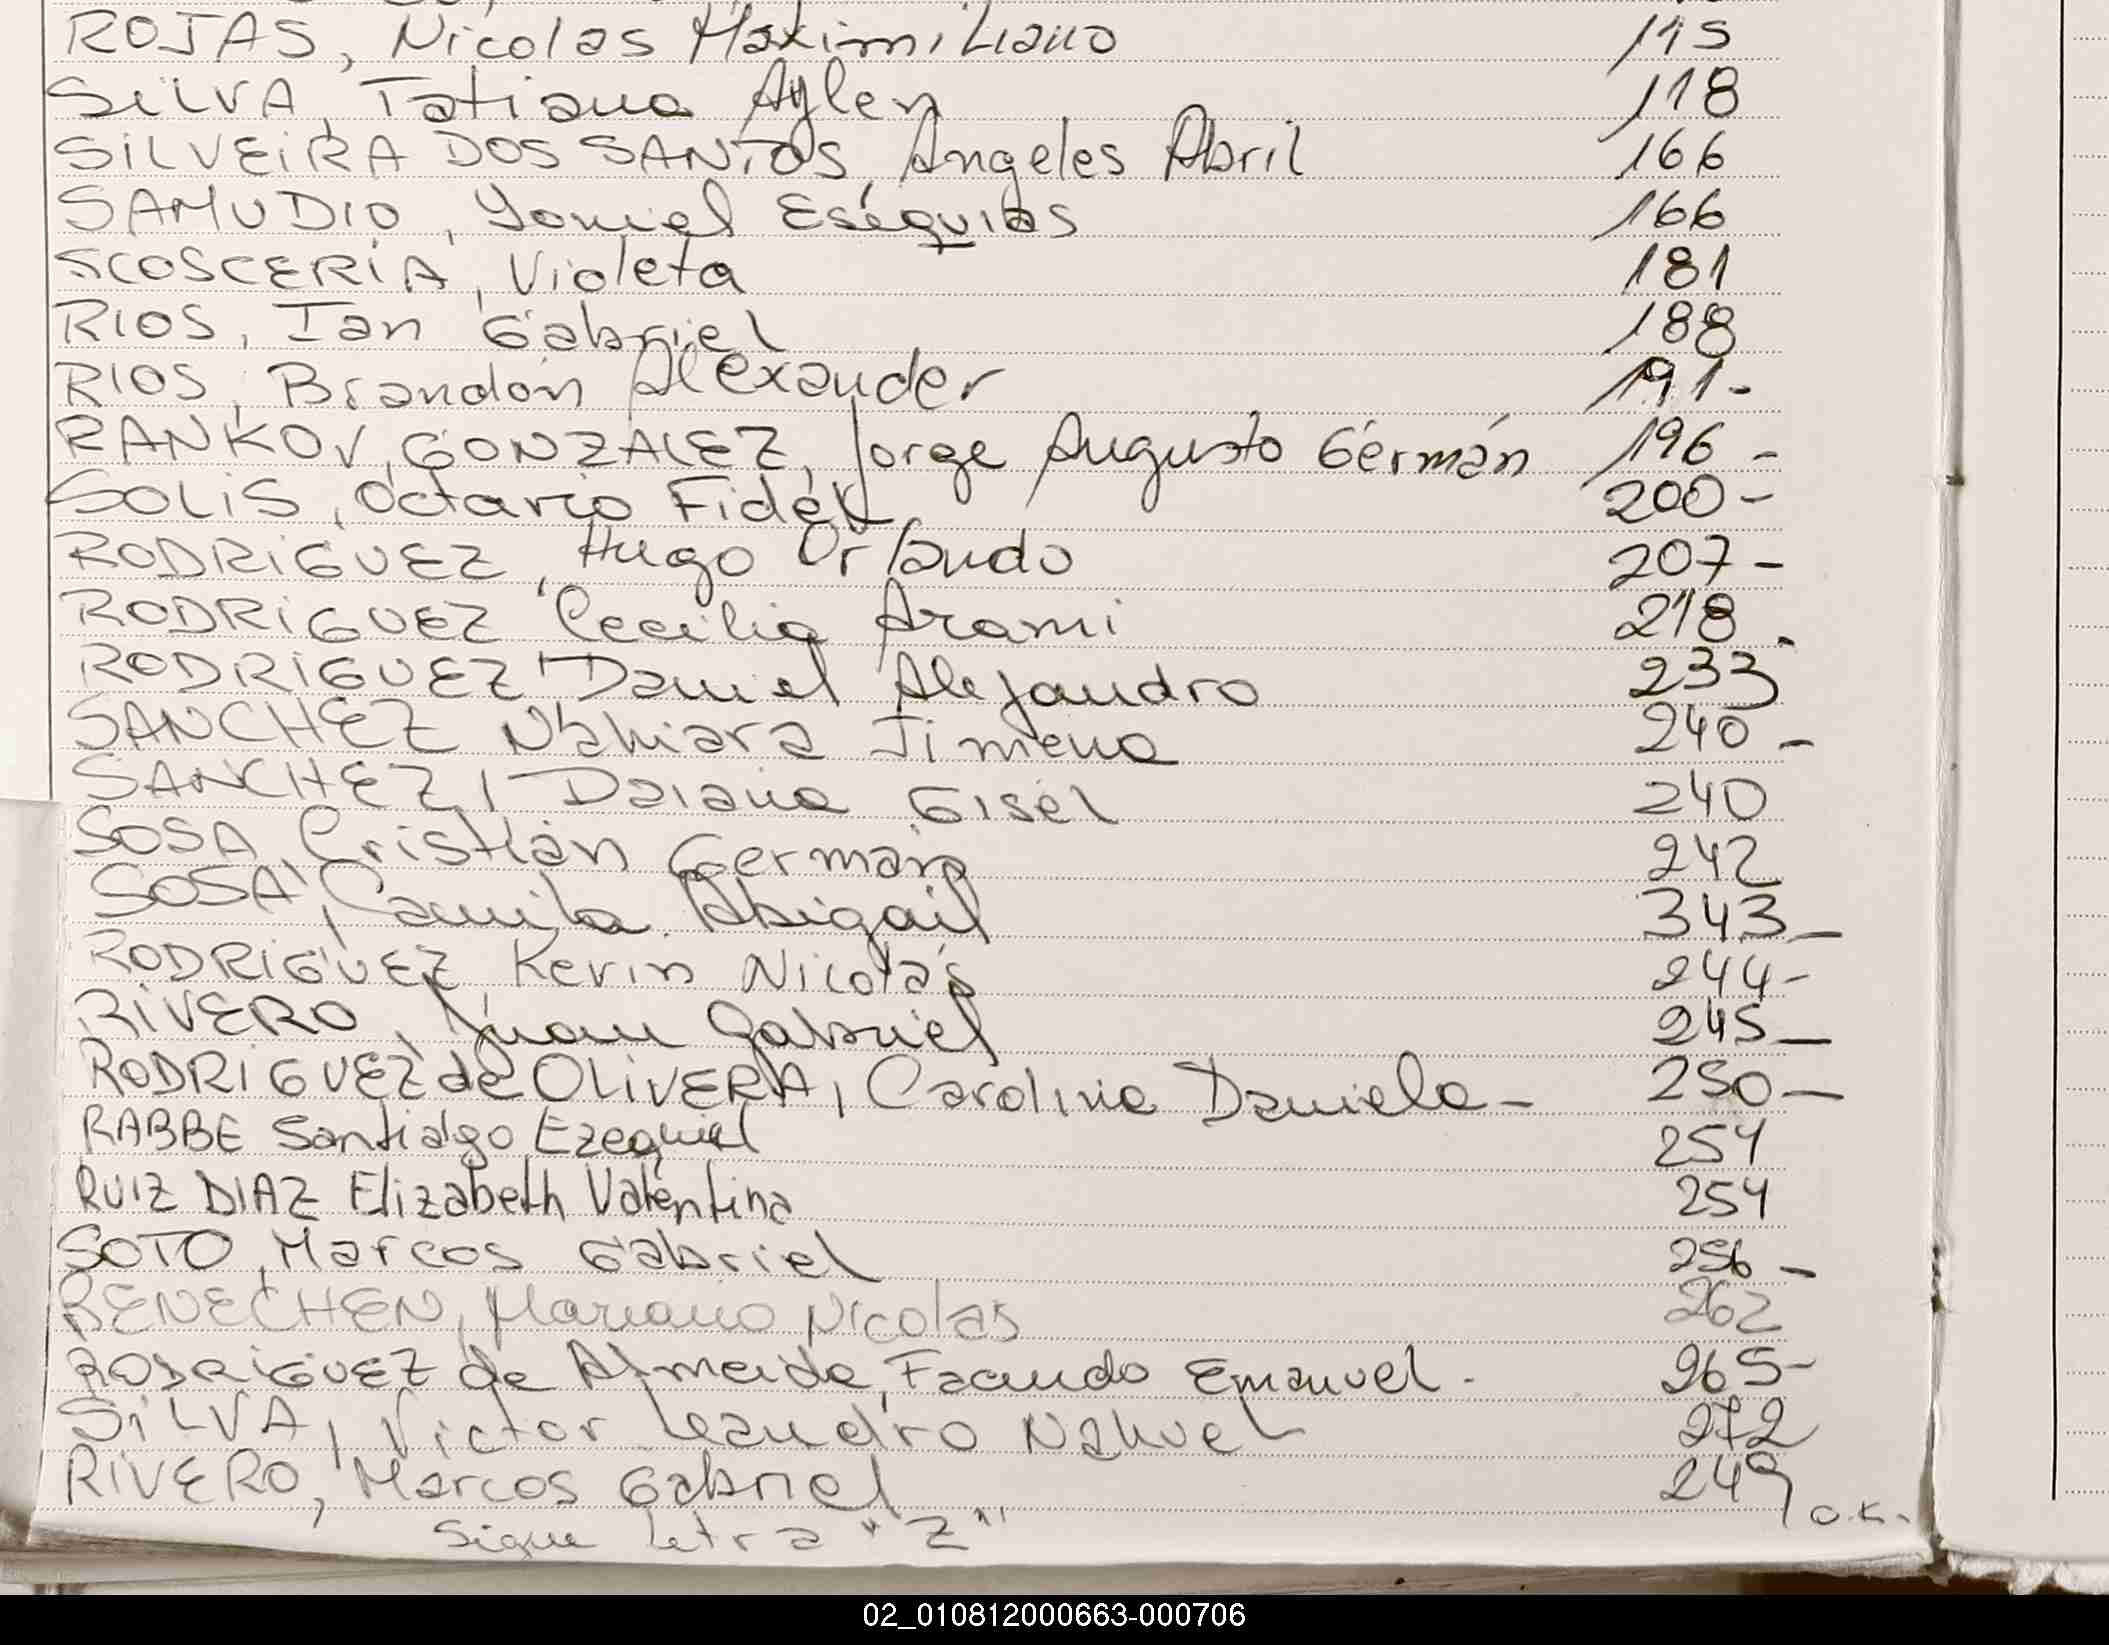 ROJAS, Nicolas Maximiliano 115
SILVA, Tatiana Aylen 118
SILVEIRA DOS SANTOS, Angeles Abril 166
SAMUDIO, Yoniel Eséquias 166
SCOSCERIA, Violeta 181
RIOS, Ian Gabriel 188
RIOS, Brandon Alexander 191-
RANKOV, GONZALEZ, Jorge Augusto Germán 196 -
SOLIS, Octavio Fidel 200 -
RODRIGUEZ, Hugo Orlando 207 -
RODRIGUEZ, Cecilia Arami 218 -
RODRIGUEZ, Daniel Alejandro 233
SANCHEZ, Nahiara Jimena 240 -
SANCHEZ, Daiana Gisel 240
SOSA, Cristian German 242
SOSA, Camila Abigail 343 -
RODRIGUEZ, Kevin Nicolás 244 -
RIVERO, Juan Gabriel 245 -
RODRIGUEZ de OLIVERA, Carolina Daniela - 250 -
RABBE Santiago Ezequiel 254
RUIZ DIAZ Elizabeth Valentina 254
SOTO, Marcos Gabriel 256 -
RENECHEN, Mariano Nicolas 262
RODRIGUEZ de Almeida, Facundo Emanuel. 265 -
SILVA, Victor Leandro Nahuel 272
RIVERO, Marcos Gabriel 249 O.K.
Sigue letra "Z"
02_010812000663-000706